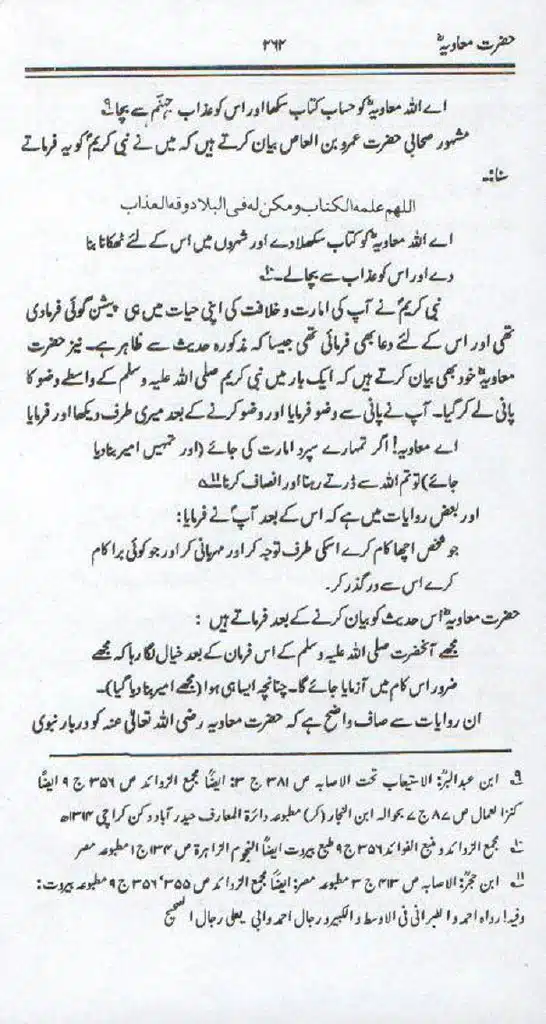 حضرت معاویہؓ ۲۶۲
اے اللہ معاویہؓ کو حساب کتاب سکھا اور اس کو عذاب جہنم سے بچا ۹؎
مشہور صحابی حضرت عمرو بن العاص بیان کرتے ہیں کہ میں نے نبی کریمؐ کو یہ فرماتے
سنا:۔
اللهم علمه الكتاب ومكن له فى البلاد وقه العذاب
اے اللہ معاویہؓ کو کتاب سکھلا دے اور شہروں میں اس کے لئے ٹھکانا بنا
دے اور اس کو عذاب سے بچا لے۔ ۱۰؎
نبی کریمؐ نے آپ کی امارت و خلافت کی اپنی حیات میں ہی پیشن گوئی فرمادی
تھی اور اس کے لئے دعا بھی فرمائی تھی جیسا کہ مذکورہ حدیث سے ظاہر ہے۔ نیز حضرت
معاویہؓ خود بھی بیان کرتے ہیں کہ ایک بار میں نبی کریم صلی اللہ علیہ وسلم کے واسطے وضو کا
پانی لے کر گیا۔ آپ نے پانی سے وضو فرمایا اور وضو کرنے کے بعد میری طرف دیکھا اور فرمایا
اے معاویہؓ! اگر تمہارے سپرد امارت کی جائے (اور تمہیں امیر بنا دیا
جائے) تو تم اللہ سے ڈرتے رہنا اور انصاف کرنا ۱۱؎
اور بعض روایات میں ہے کہ اس کے بعد آپؐ نے فرمایا:
جو شخص اچھا کام کرے اسکی طرف توجہ کر اور مہربانی کر اور جو کوئی برا کام
کرے اس سے درگذر کر۔
حضرت معاویہؓ اس حدیث کو بیان کرنے کے بعد فرماتے ہیں :
مجھے آنحضرت صلی اللہ علیہ وسلم کے اس فرمان کے بعد خیال لگا رہا کہ مجھے
ضرور اس کام میں آزمایا جائے گا۔ چنانچہ ایسا ہی ہوا (مجھے امیر بنا دیا گیا)۔
ان روایات سے صاف واضح ہے کہ حضرت معاویہ رضی اللہ تعالیٰ عنہ کو دربار نبوی
۹؎ ابن عبدالبرؒ: الاستیعاب تحت الاصابہ ص ۳۸۱ ج ۳: ایضاً مجمع الزوائد ص ۳۵۶ ج ۹ ایضاً
کنز العمال ص ۸۷ ج ۷ بحوالہ ابن النجار (کر) مطبوعہ دائرۃ المعارف حیدر آباد دکن کراچی ۱۳۱۴ھ
۱۰؎ مجمع الزوائد و منبع الفوائد ۳۵۶ ج ۹ طبع بیروت ایضاً النجوم الزاہرۃ ص ۱۳۴ ج ۱ مطبوعہ مصر
۱۱؎ ابن حجرؒ: الاصابہ ص ۴۱۳ ج ۳ مطبوعہ مصر: ایضاً مجمع الزوائد ص ۳۵۵‘ ۳۵۶ ج ۹ مطبوعہ بیروت:
وفیہ! رواہ احمد و الطبرانی فی الاوسط و الکبیر و رجال احمد و ابی یعلی رجال الصحیح